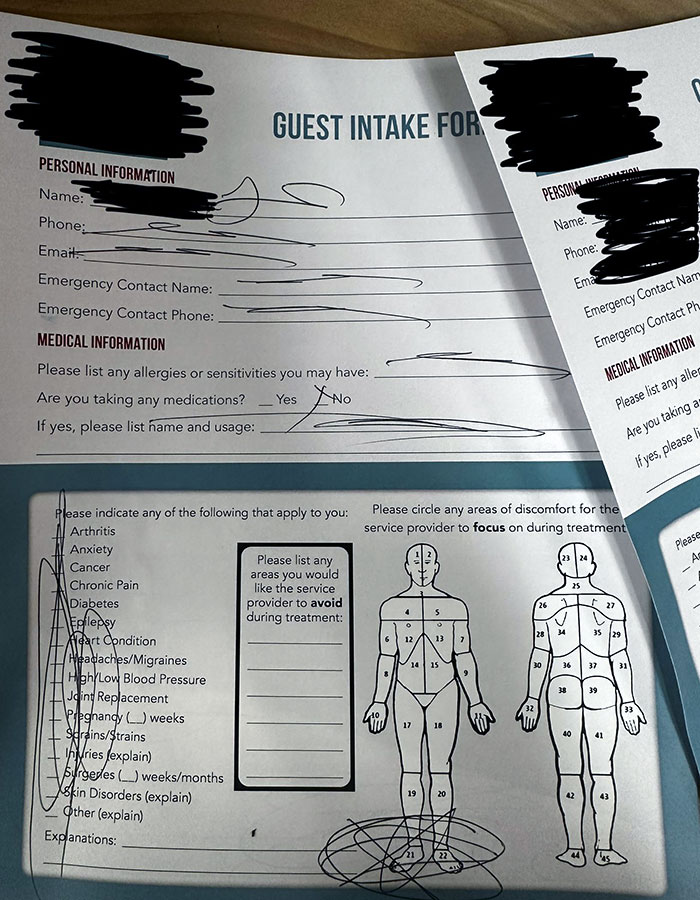 GUEST INTAKE FOR
PERSONAL INFORMATION
Name:
Phone:
Email:
Emergency Contact Name:
Emergency Contact Phone:
MEDICAL INFORMATION
Please list any allergies or sensitivities you may have:
Are you taking any medications? __ Yes __ No
If yes, please list name and usage:
Please indicate any of the following that apply to you:
__ Arthritis
__ Anxiety
__ Cancer
__ Chronic Pain
__ Diabetes
__ Epilepsy
__ Heart Condition
__ Headaches/Migraines
__ High/Low Blood Pressure
__ Joint Replacement
__ Pregnancy (__) weeks
__ Sprains/Strains
__ Injuries (explain)
__ Surgeries (__) weeks/months
__ Skin Disorders (explain)
__ Other (explain)
Explanations:
Please list any
areas you would
like the service
provider to avoid
during treatment:
Please circle any areas of discomfort for the
service provider to focus on during treatment
1 2
4 5
6 12 13 7
8 14 15 9
10 11
17 18
19 20
21 22
23 24
25
26 27
28 34 35 29
30 36 37 31
38 39
32 33
40 41
42 43
44 45
PERSONAL INFORMATION
Name:
Phone:
Ema
Emergency Contact Nam
Emergency Contact Ph
MEDICAL INFORMATION
Please list any aller
Are you taking a
If yes, please li
Please